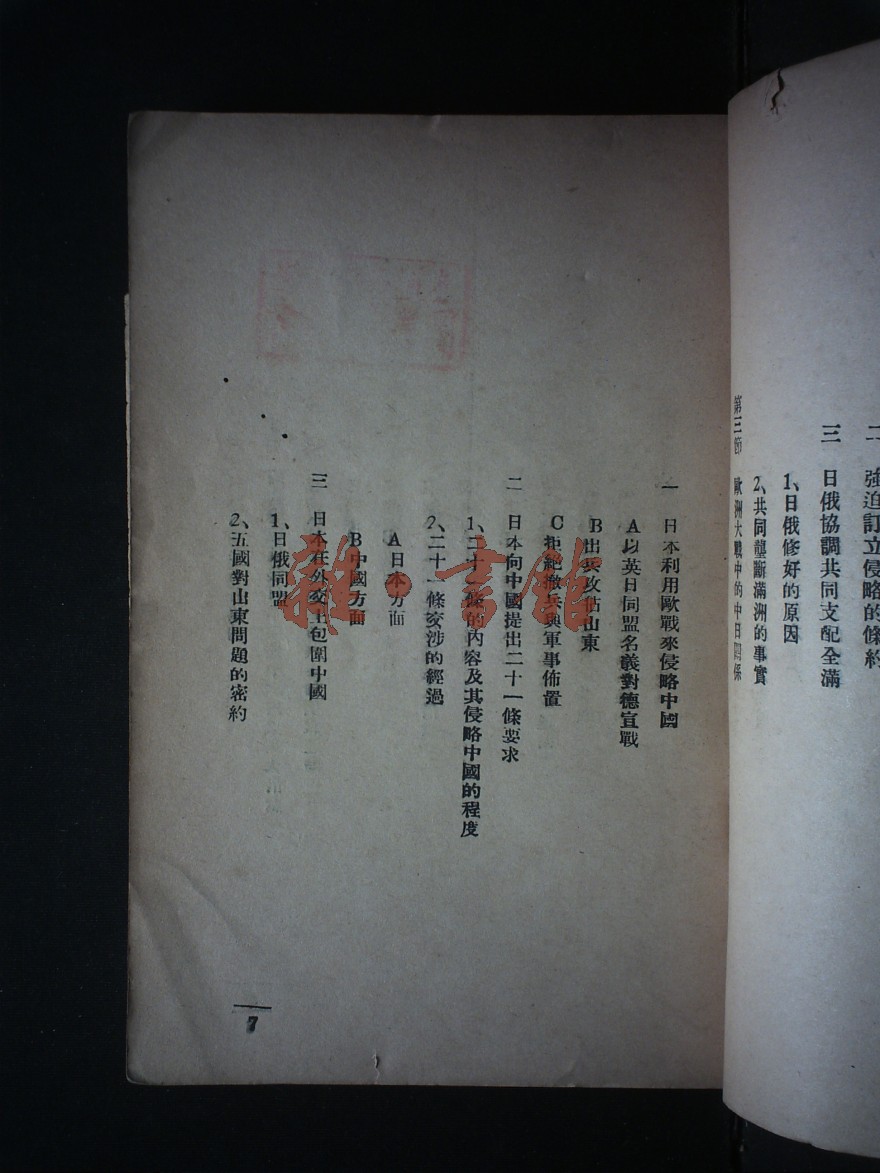 二　強迫訂立侵略的條約
三　日俄協調共同支配全滿
1、日俄修好的原因
2、共同壟斷滿洲的事實
第三節　歐洲大戰中的中日關係
一　日本利用歐戰來侵略中國
A 以英日同盟名義對德宣戰
B 出兵攻佔山東
C 拒絕撤兵與軍事佈置
二　日本向中國提出二十一條要求
1、二十一條的內容及其侵略中國的程度
2、二十一條交涉的經過
A 日本方面
B 中國方面
三　日本在外交上包圍中國
1、日俄同盟
2、五國對山東問題的密約
7
雜·書館